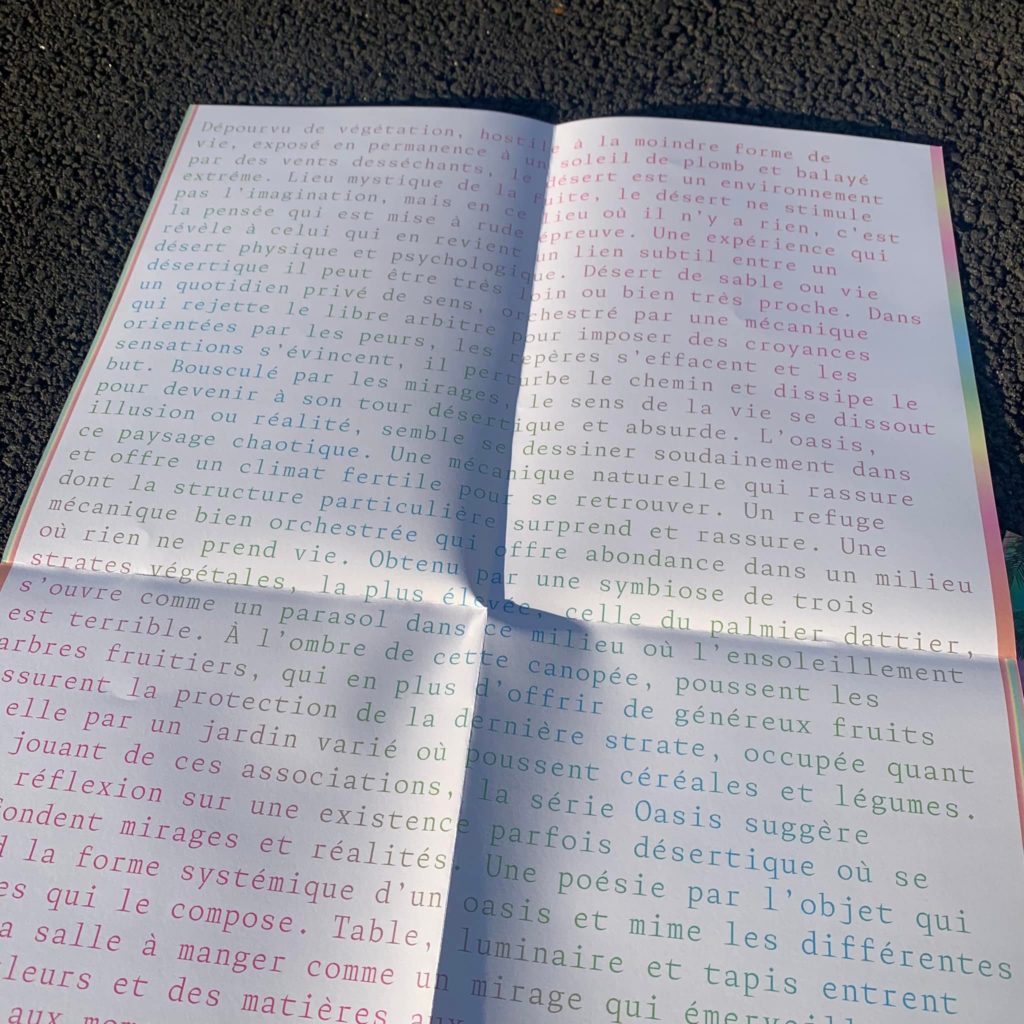 Dépourvu de végétation, hostile à la moindre forme de
vie, exposé en permanence à un soleil de plomb et balayé
par des vents desséchants, le désert est un environnement
extréme. Lieu mystique de la fuite, le désert ne stimule
pas l'imagination, mais en ce lieu où il n'y a rien, c'est
la pensée qui est mise à rude épreuve. Une expérience qui
révèle à celui qui en revient un lien subtil entre un
désert physique et psychologique. Désert de sable ou vie
désertique il peut être très loin ou bien très proche. Dans
un quotidien privé de sens, orchestré par une mécanique
qui rejette le libre arbitre pour imposer des croyances
orientées par les peurs, les repères s'effacent et les
sensations s'évincent, il perturbe le chemin et dissipe le
but. Bousculé par les mirages, le sens de la vie se dissout
pour devenir à son tour désertique et absurde. L'oasis,
illusion ou réalité, semble se dessiner soudainement dans
ce paysage chaotique. Une mécanique naturelle qui rassure
et offre un climat fertile pour se retrouver. Un refuge
dont la structure particulière surprend et rassure. Une
mécanique bien orchestrée qui offre abondance dans un milieu
où rien ne prend vie. Obtenu par une symbiose de trois
strates végétales, la plus élevée, celle du palmier dattier,
s'ouvre comme un parasol dans ce milieu où l'ensoleillement
est terrible. À l'ombre de cette canopée, poussent les
arbres fruitiers, qui en plus d'offrir de généreux fruits
ssurent la protection de la dernière strate, occupée quant
elle par un jardin varié où poussent céréales et légumes.
jouant de ces associations, la série Oasis suggère
réflexion sur une existence parfois désertique où se
fondent mirages et réalités. Une poésie par l'objet qui
la forme systémique d'un oasis et mime les différentes
es qui le compose. Table, luminaire et tapis entrent
a salle à manger comme un mirage qui émerveill
leurs et des matières
aux